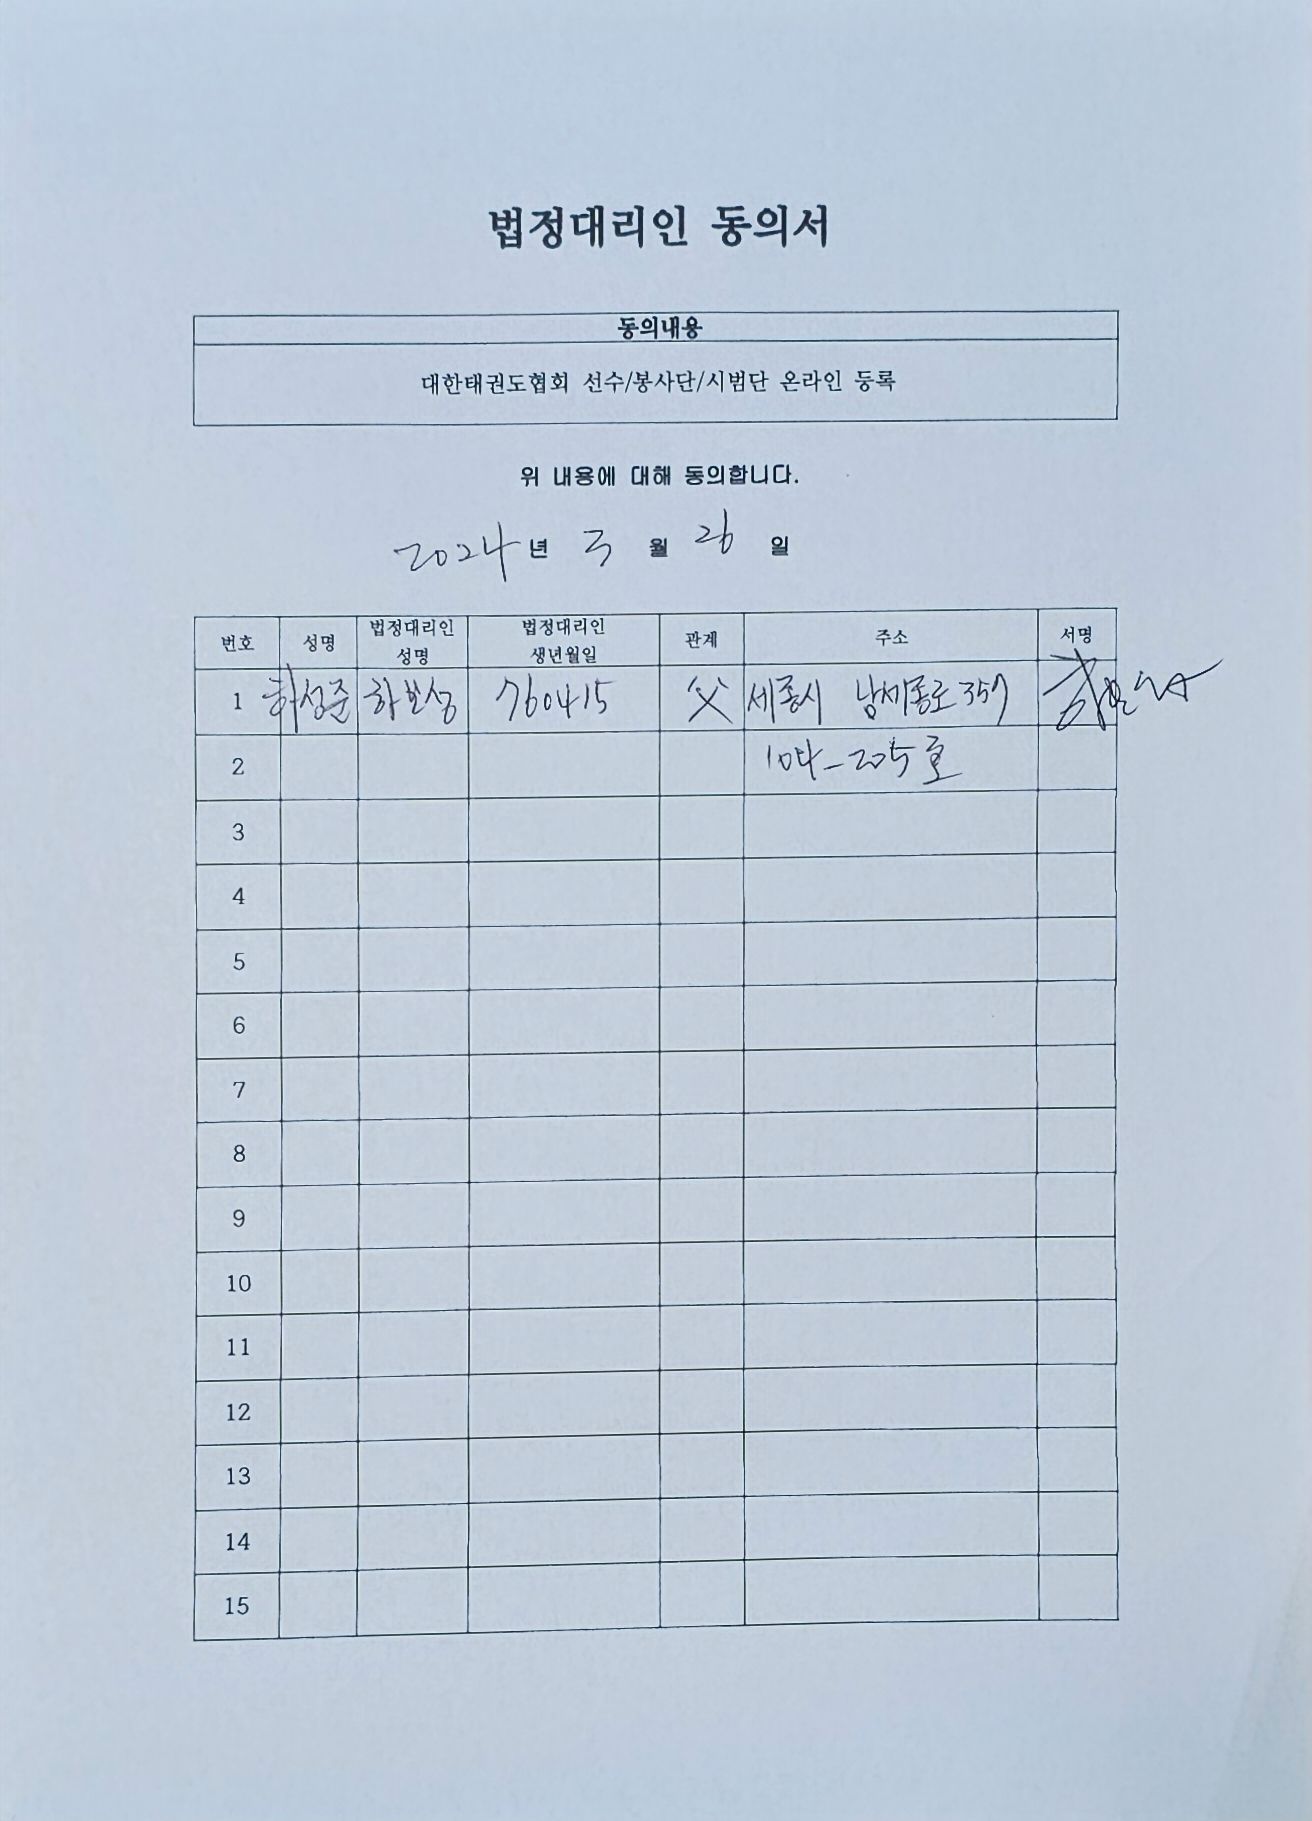 법정대리인 동의서
동의내용
대한태권도협회 선수/봉사단/시범단 온라인 등록
위 내용에 대해 동의합니다.
2024년 3 월 26 일
번호 성명 법정대리인 성명 법정대리인 생년월일 관계 주소 서명
1 하성준 하보성 760415 父 세종시 남세종로 357
2 104-205호
3
4
5
6
7
8
9
10
11
12
13
14
15